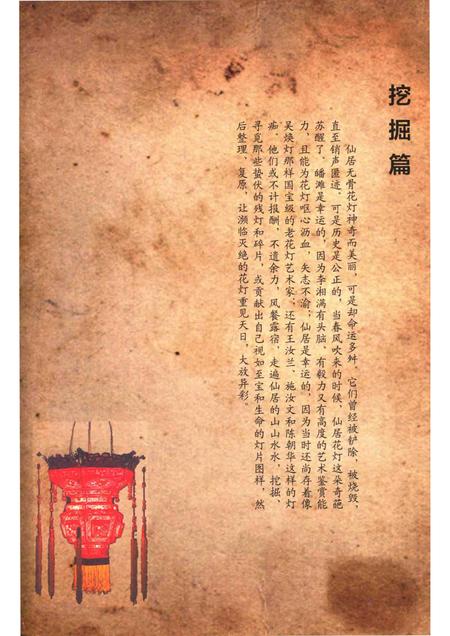 挖掘篇
仙居无骨花灯神奇而美丽，可是却命运多舛，它们曾经被铲除，被烧毁，
直至销声匿迹，可是历史是公正的，当春风吹来的时候，仙居花灯这朵奇葩
苏醒了，皤滩是幸运的，因为李湘满有头脑，有毅力又有高度的艺术鉴赏能
力，且能为花灯呕心沥血，矢志不渝；仙居是幸运的，因为当时还尚存着像
吴焕灯那样国宝级的老花灯艺术家；还有王汝兰、施汝文和陈朝华这样的灯
痴。他们或不计报酬，不遗余力，风餐露宿，走遍仙居的山山水水，挖掘、
寻觅那些蛰伏的残灯和碎片，或贡献出自己视如至宝和生命的灯片图样，然
后整理、复原，让濒临灭绝的花灯重见天日，大放异彩。